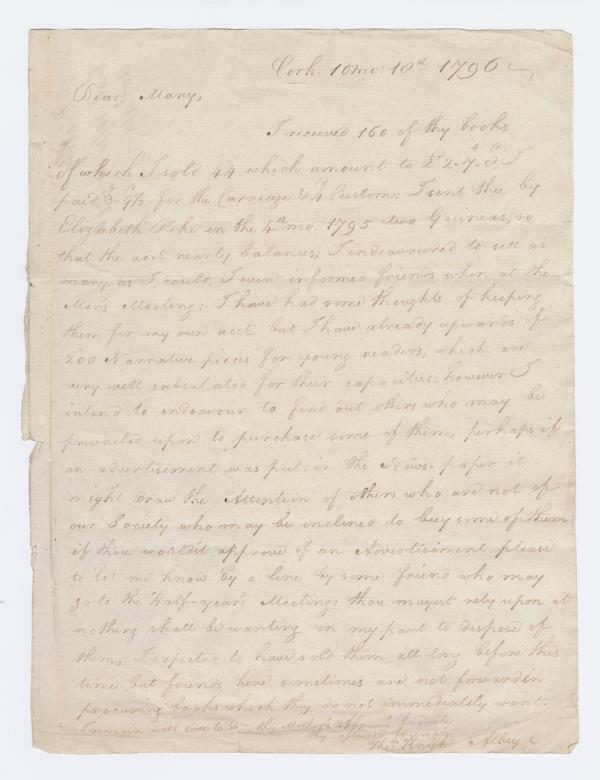 Cork 10mo: 18th 1796
Dear Mary,
I received 160 of thy books
of which I sold 44 which amount to £2.7.8 I
paid 3. 9½ for the Carriage & 4 Custom: I sent thee by
Elizabeth Pike in the 4th mo. 1795 two Guineas, so
that the acct nearly balances; I endeavoured to sell as
many as I could, I even informed friends when at the
Men's Meeting: I have had some thoughts of keeping
them for my own acct but I have already upwards of
200 Narrative pieces for young readers, which are
very well calculated for their capacities. however I
intend to endeavour to find out others who may be
prevailed upon to purchase some of them, perhaps if
an advertisement was put in the News-paper it
might draw the Attention of others who are not of
our Society who may be inclined to buy some of them
if thou would'st approve of an Advertisiment please
to let me know by a line by some friend who may
go to the Half-year's Meeting: thou mayest rely upon it
nothing shall be wanting on my part to dispose of
them, I expected to have sold them all long before this
time but friends here sometimes are not forward in
procuring books which they do not immediately want.
I remain with love to thy Mother family
thy
Thos Knight